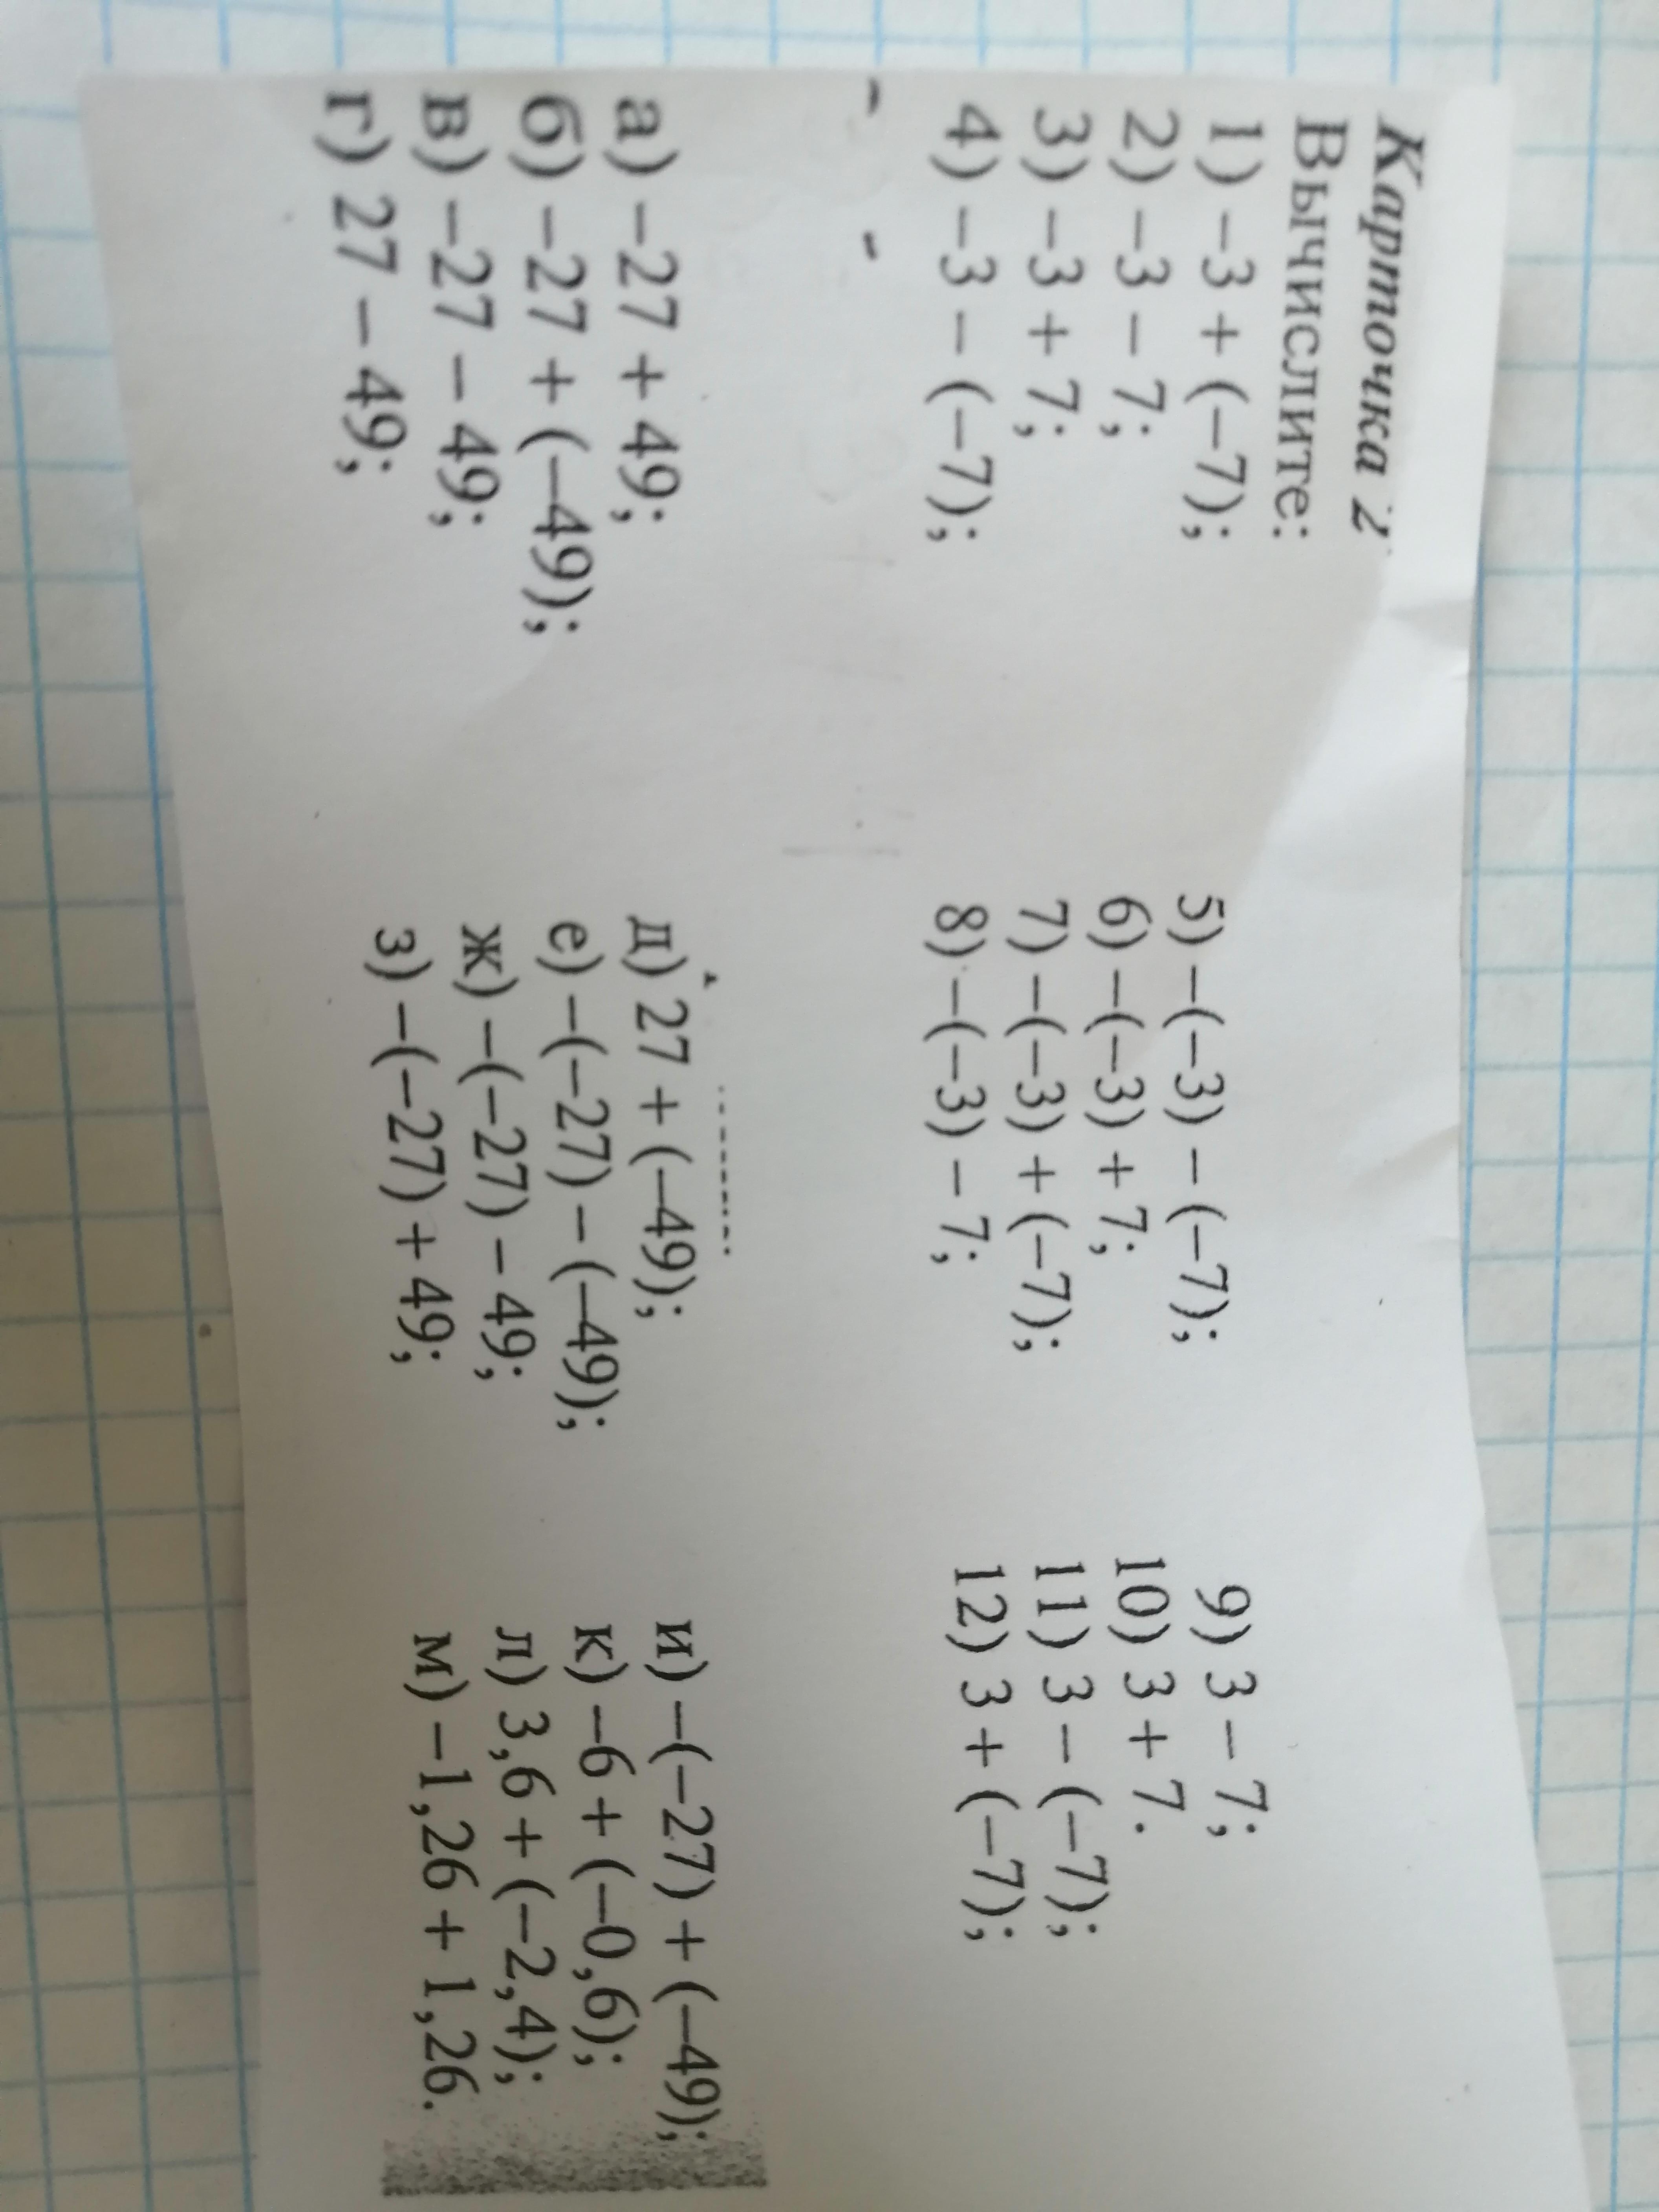 Карточка 2
Вычислите:
1) –3 + (–7);
2) –3 – 7;
3) –3 + 7;
4) –3 – (–7);
5) –(–3) – (–7);
6) –(–3) + 7;
7) –(–3) + (–7);
8) –(–3) – 7;
9) 3 – 7;
10) 3 + 7.
11) 3 – (–7);
12) 3 + (–7);
а) –27 + 49;
б) –27 + (–49);
в) –27 – 49;
г) 27 – 49;
д) 27 + (–49);
е) –(–27) – (–49);
ж) –(–27) – 49;
з) –(–27) + 49;
и) –(–27) + (–49);
к) –6 + (–0,6);
л) 3,6 + (–2,4);
м) –1,26 + 1,26.